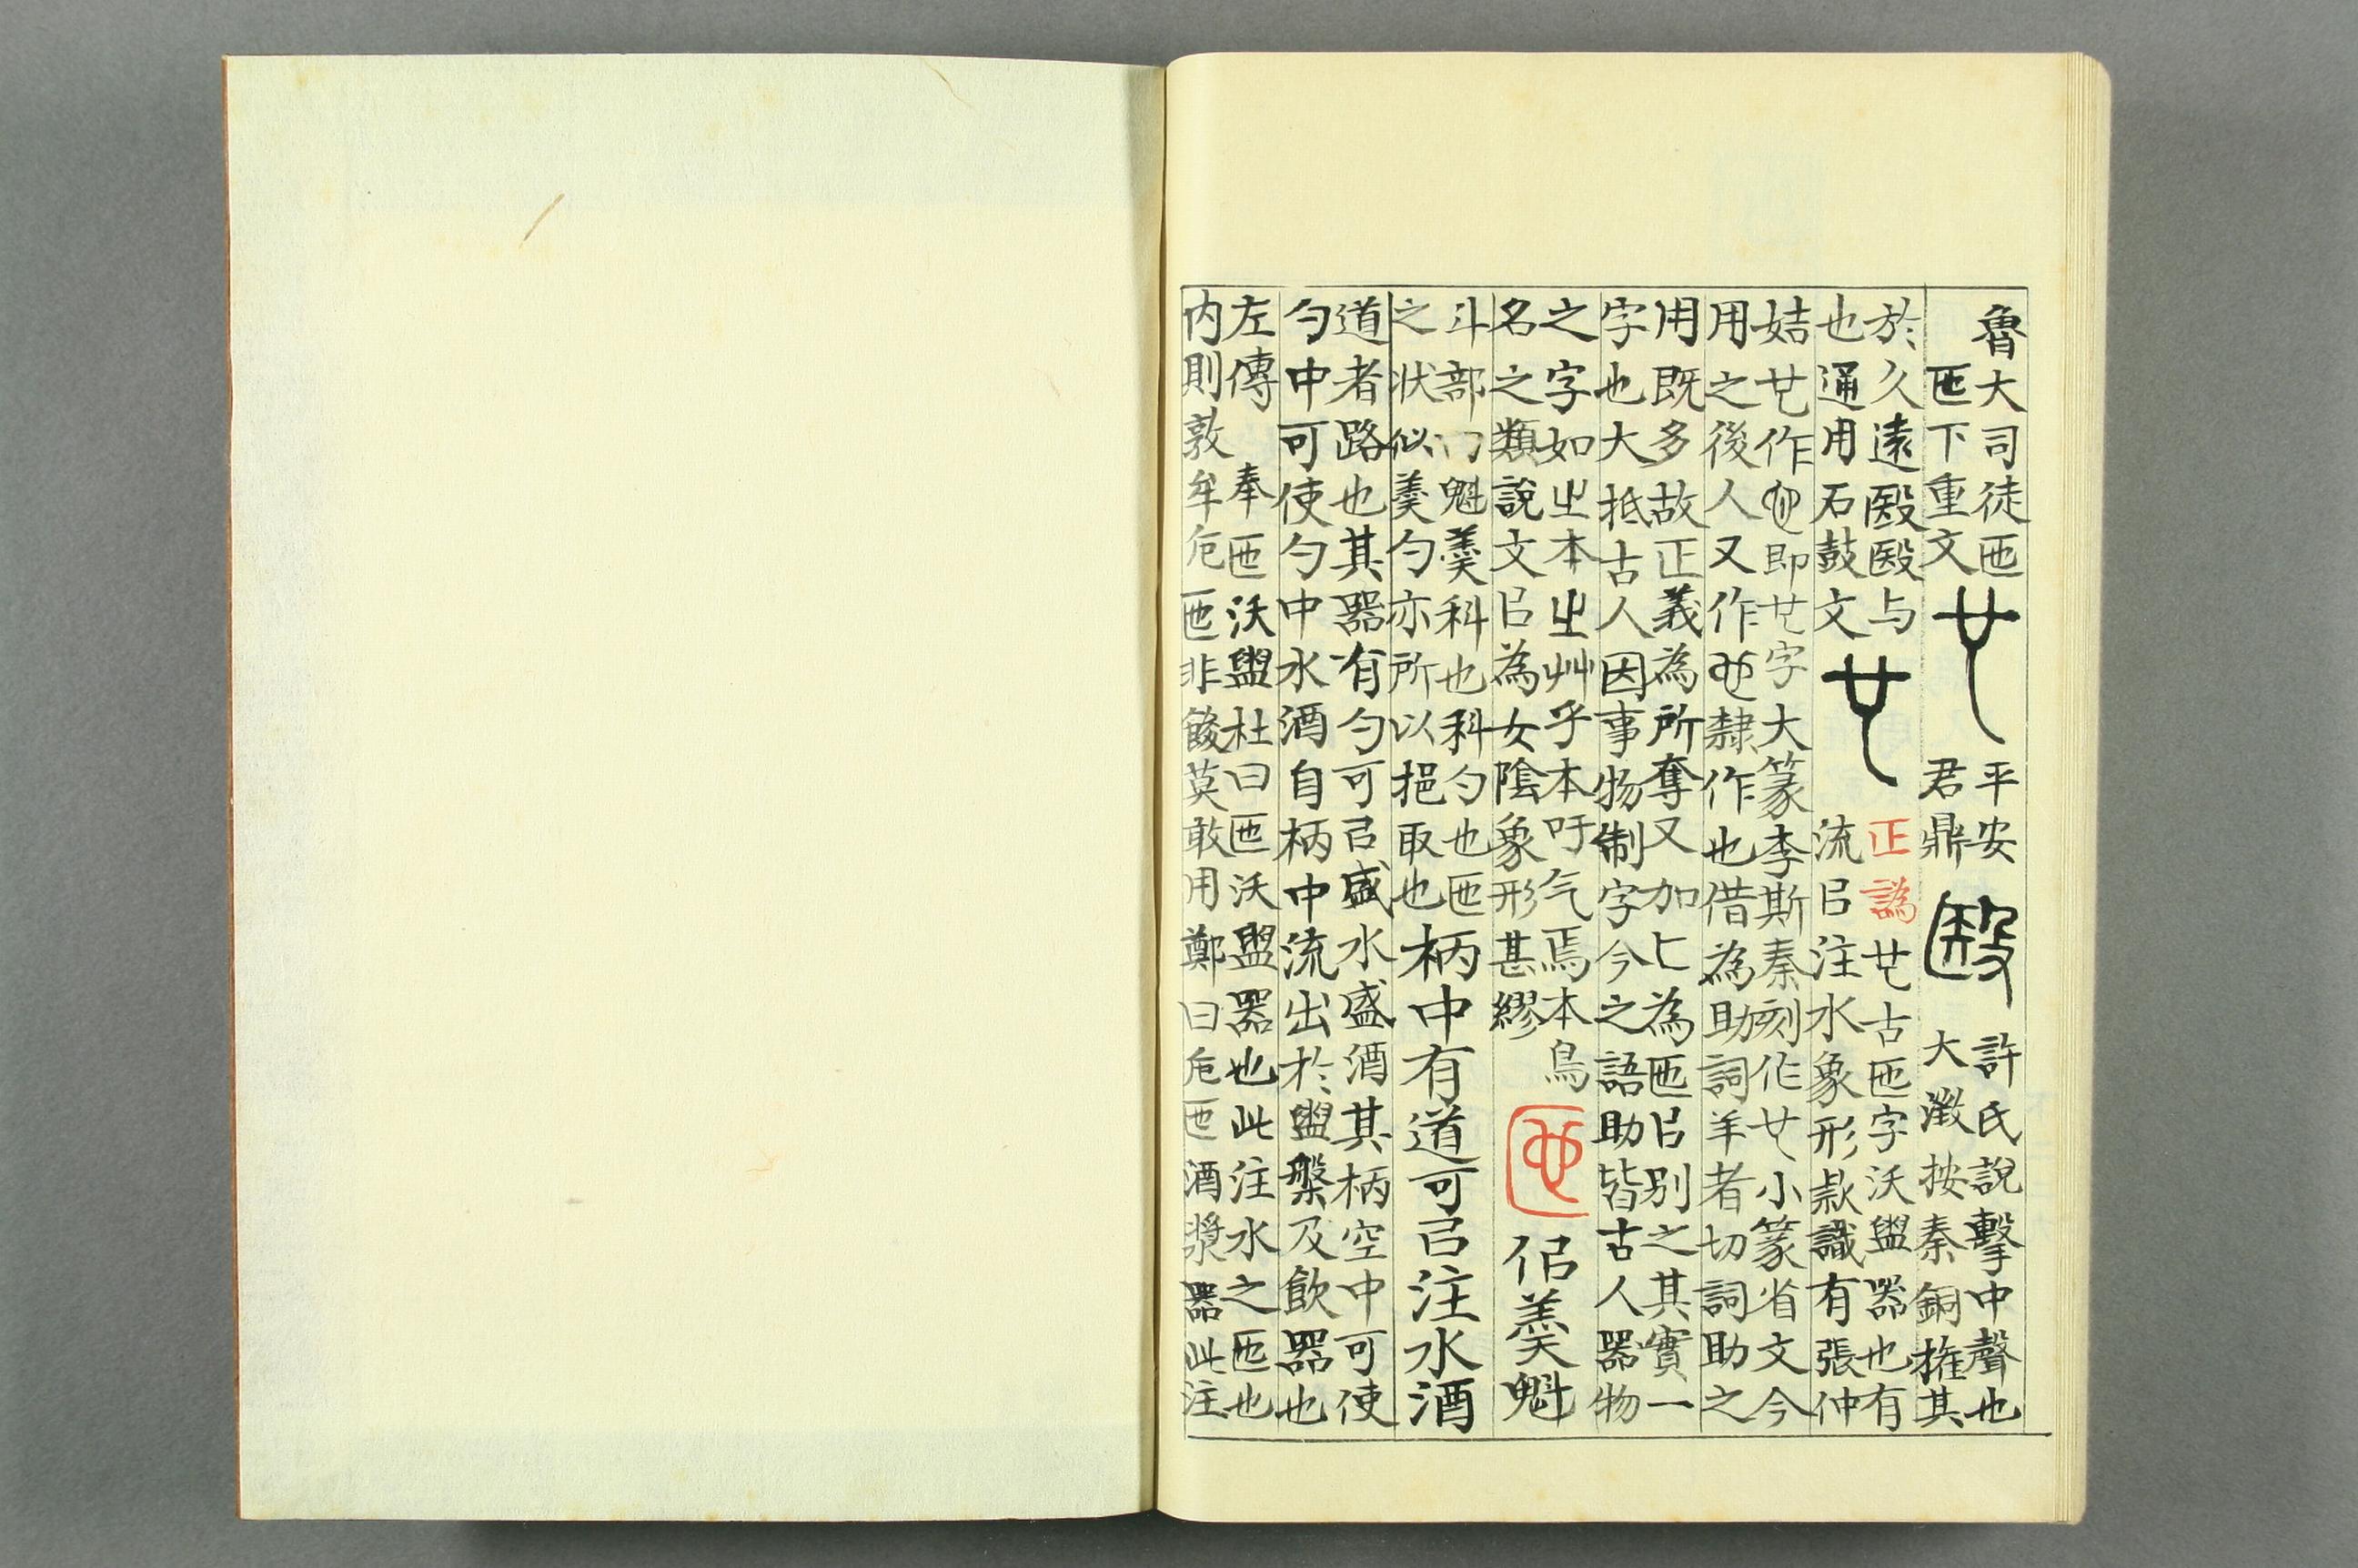 魯大司徒匜
匜下重文
平安
君鼎
許氏說擊中聲也
大澂按秦銅權其
於久遠毉醫与
也通用石鼓文
正譌
古匜字沃盥器也有
流㠯注水象形款識有張仲
姞作即字大篆李斯秦刻作小篆省文今
用之後人又作隸作也借為助詞羊者切詞助之
用既多故正義為所奪又加匚為匜㠯別之其實一
字也大抵古人因事物制字今之語助皆古人器物
之字如㞢本㞢艸乎本吁气焉本鳥
名之類說文㠯為女陰象形甚繆
匜
佀羹魁
斗部魁羹科也科勺也匜
之狀似羹勺亦所以挹取也
柄中有道可㠯注水酒
道者路也其器有勺可㠯盛水盛酒其柄空中可使
勺中可使勺中水酒自柄中流出於盥槃及飲器也
左傳奉匜沃盥杜曰匜沃盥器也此注水之匜也
内則敦牟卮匜非餕莫敢用鄭曰卮匜酒漿器此注